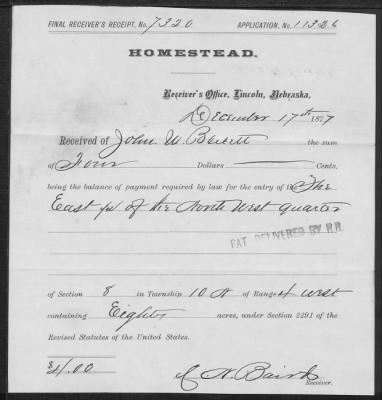 FINAL RECEIVER'S RECEIPT, No. 7320 APPLICATION, No. 11326
HOMESTEAD.
Receiver's Office, Lincoln, Nebraska,
December 17th 1877
Received of John W. the sum
of Four Dollars Cents,
being the balance of payment required by law for the entry of The
East of the North West quarter
PAT. DELIVERED BY R.R.
of Section 8 in Township 10 N of Range 4 West
containing Eighty acres, under Section 2291 of the
Revised Statutes of the United States.
$4.00
Receiver.